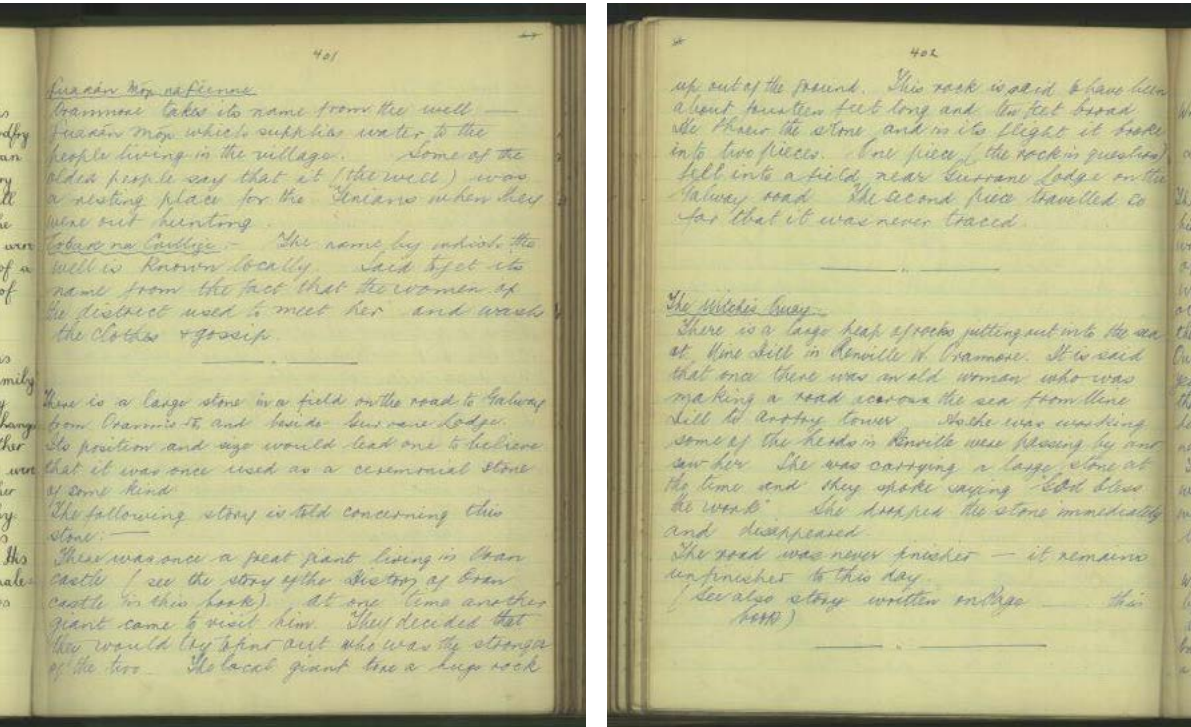 401
Fuarán Mór na Féinne
Oranmore takes its name from the well —
Fuarán Mór which supplies water to the
people living in the village. Some of the
older people say that it (the well) was
a resting place for the Fenians when they
were out hunting.
Tobar na Caillighe :- The name by which the
well is known locally. Said to get its
name from the fact that the women of
the district used to meet her and wash
the clothes + gossip.
There is a large stone in a field on the road to Galway
from Oranmore, and beside Gurrane Lodge.
Its position and size would lead one to believe
that it was once used as a ceremonial stone
of some kind
The following story is told concerning this
stone: —
There was once a great giant living in Oran
castle (see the story of the History of Oran
castle in this book). At one time another
giant came to visit him. They decided that
they would try to find out who was the stronger
of the two. The local giant tore a huge rock
402
up out of the ground. This rock is said to have been
about fourteen feet long and ten feet broad
He threw the stone, and in its flight it broke
into two pieces. One piece, (the rock in question)
fell into a field, near Gurrane Lodge on the
Galway road The second piece travelled so
far that it was never traced.
The Witches Quay.
There is a large heap of rocks jutting out into the sea
at Mine Hill in Renville W. Oranmore. It is said
that once there was an old woman who was
making a road across the sea from Mine
Hill to Ardfry tower As she was working
some of the herds in Renville were passing by and
saw her She was carrying a large stone at
the time and they spoke saying "God bless
the work" She dropped the stone immediately
and disappeared.
The road was never finished — it remains
unfinished to this day.
(See also story written on Page ____ this
book)